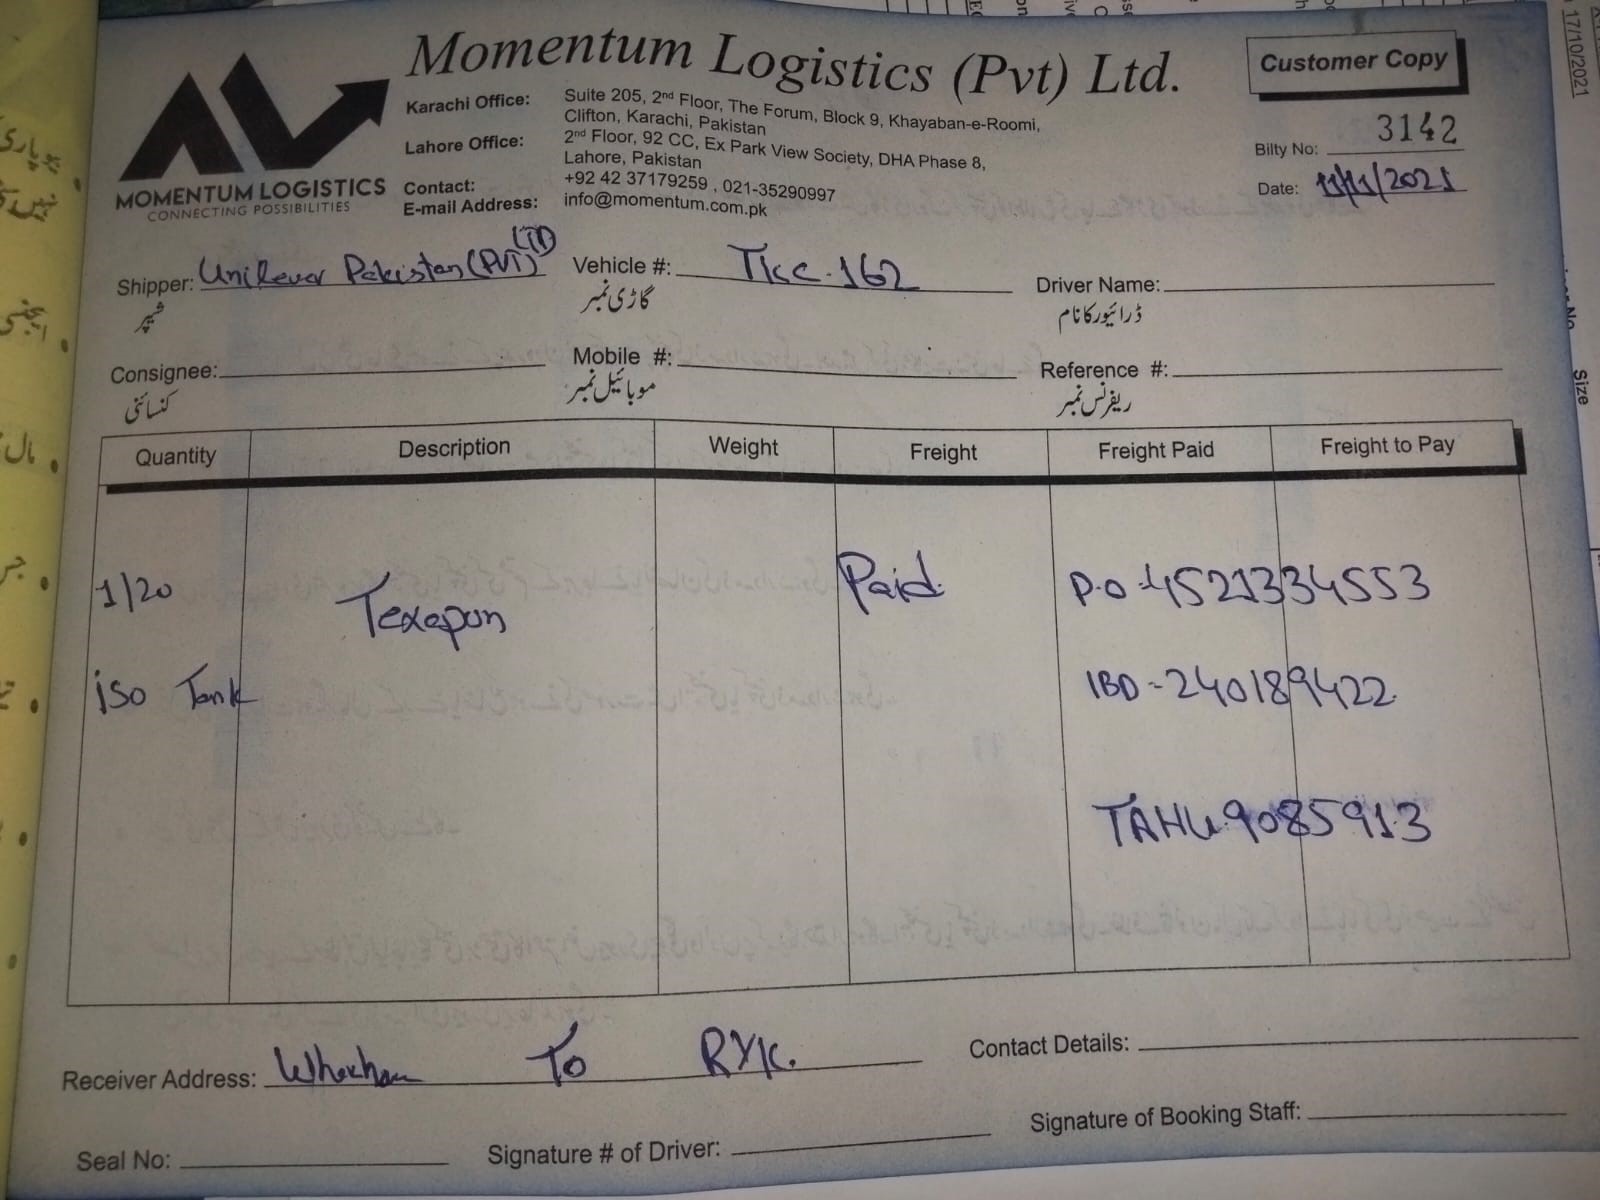 Momentum Logistics (Pvt) Ltd.
Customer Copy
MOMENTUM LOGISTICS
CONNECTING POSSIBILITIES
Karachi Office: Suite 205, 2nd Floor, The Forum, Block 9, Khayaban-e-Roomi,
Clifton, Karachi, Pakistan
Lahore Office: 2nd Floor, 92 CC, Ex Park View Society, DHA Phase 8,
Lahore, Pakistan
Contact: +92 42 37179259 , 021-35290997
E-mail Address: info@momentum.com.pk
Bilty No: 3142
Date: 11/11/2021
Shipper: Unilever Pakistan (PVT) LTD Vehicle #: TKC-162 Driver Name:
شپر گاڑی نمبر ڈرائیور کا نام
Consignee: Mobile #: Reference #:
کنسائنی موبائیل نمبر ریفرنس نمبر
Quantity Description Weight Freight Freight Paid Freight to Pay
1/20 Texapon Paid P.O-4521334553
iso Tank IBD-240189422
TAHU 9085913
Receiver Address: To RYK. Contact Details:
Seal No: Signature # of Driver: Signature of Booking Staff:
17/10/2021
Size